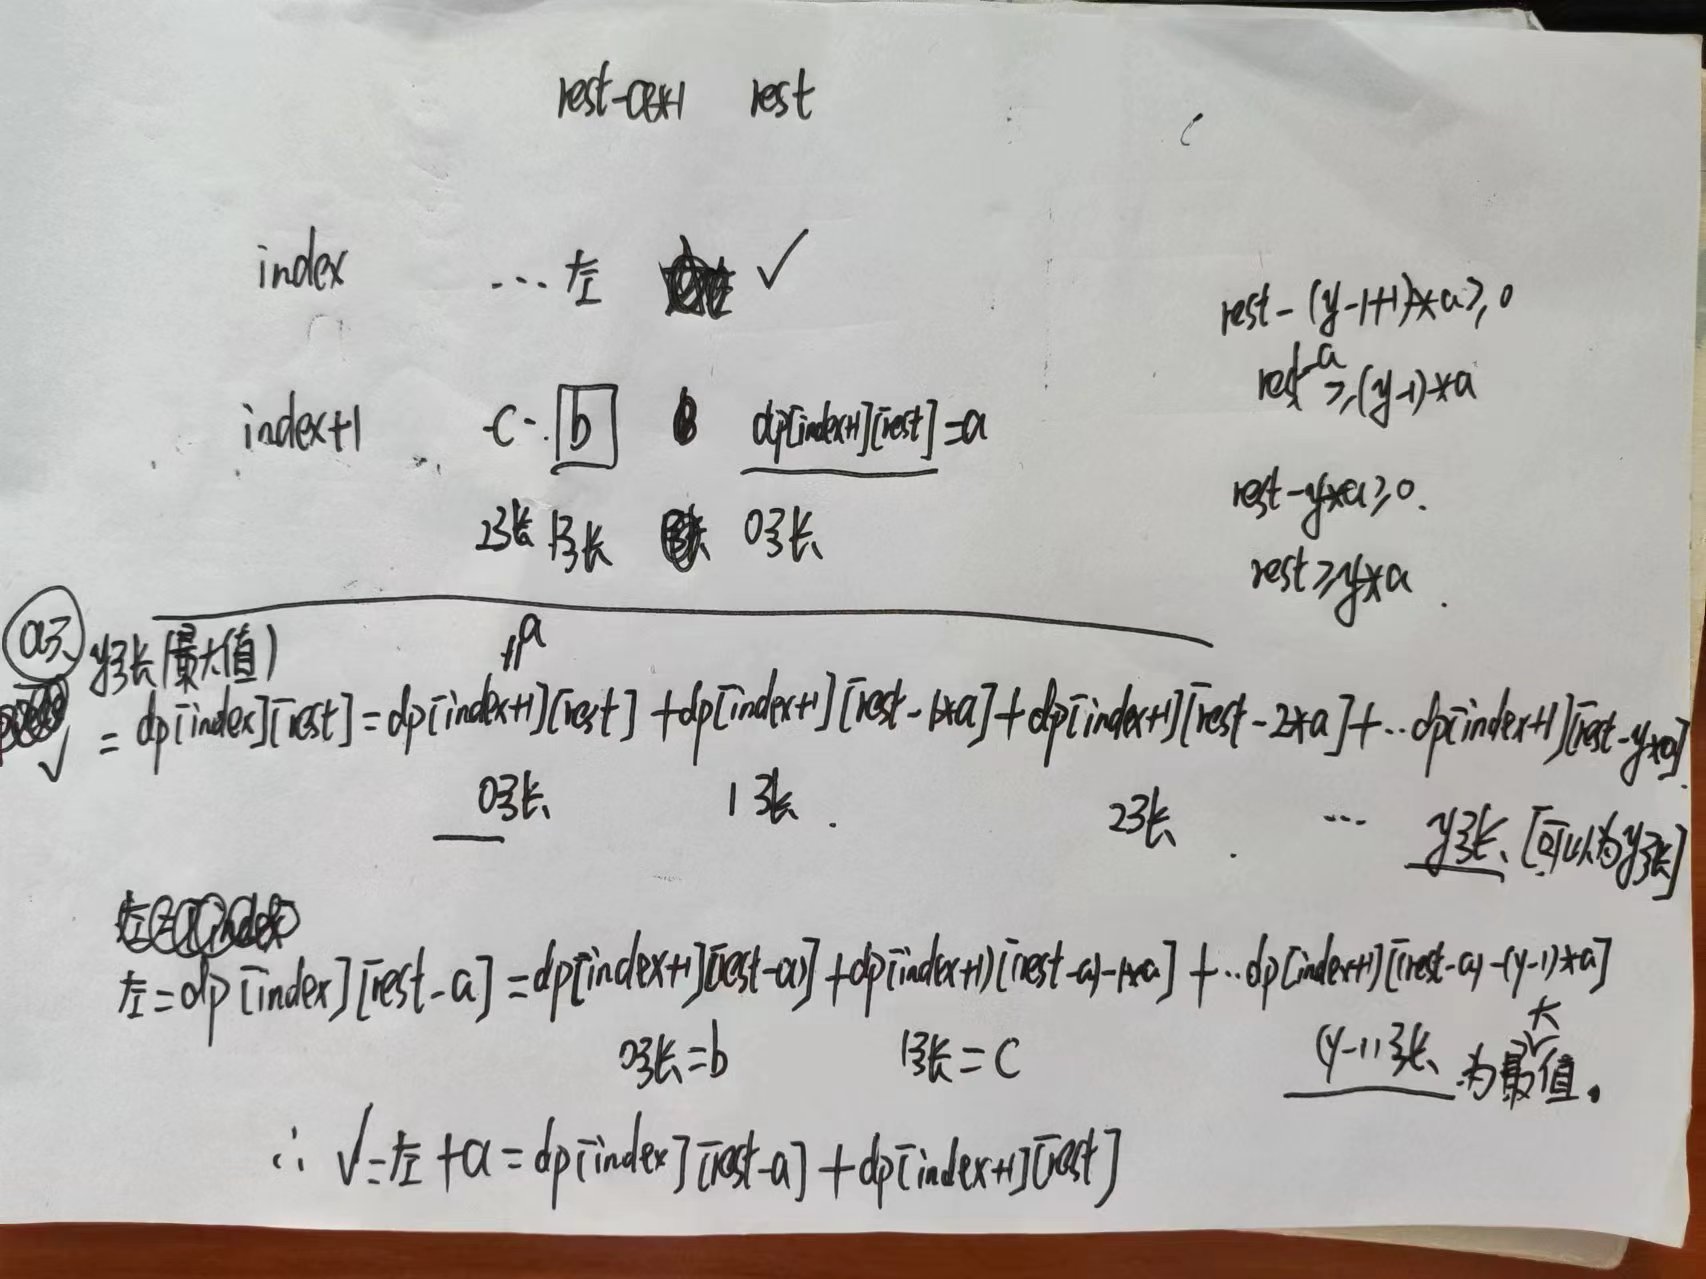 rest-a*1 rest
index ... 左 ✓
rest-(y-1+1)*a≥0
rest-a≥(y-1)*a
index+1 c-. b dp[index+1][rest]=a
2张 1张 0张
rest-y*a≥0.
rest≥y*a
a
y张(最大值)
✓=dp[index][rest]=dp[index+1][rest]+dp[index+1][rest-1*a]+dp[index+1][rest-2*a]+...dp[index+1][rest-y*a]
0张 1张 2张 ... y张 [可以为y张]
左=dp[index][rest-a]=dp[index+1][(rest-a)]+dp[index+1][(rest-a)-1*a]+...dp[index+1][(rest-a)-(y-1)*a]
0张=b 1张=c (y-1)张 为最大值.
∴ ✓=左+a=dp[index][rest-a]+dp[index+1][rest]